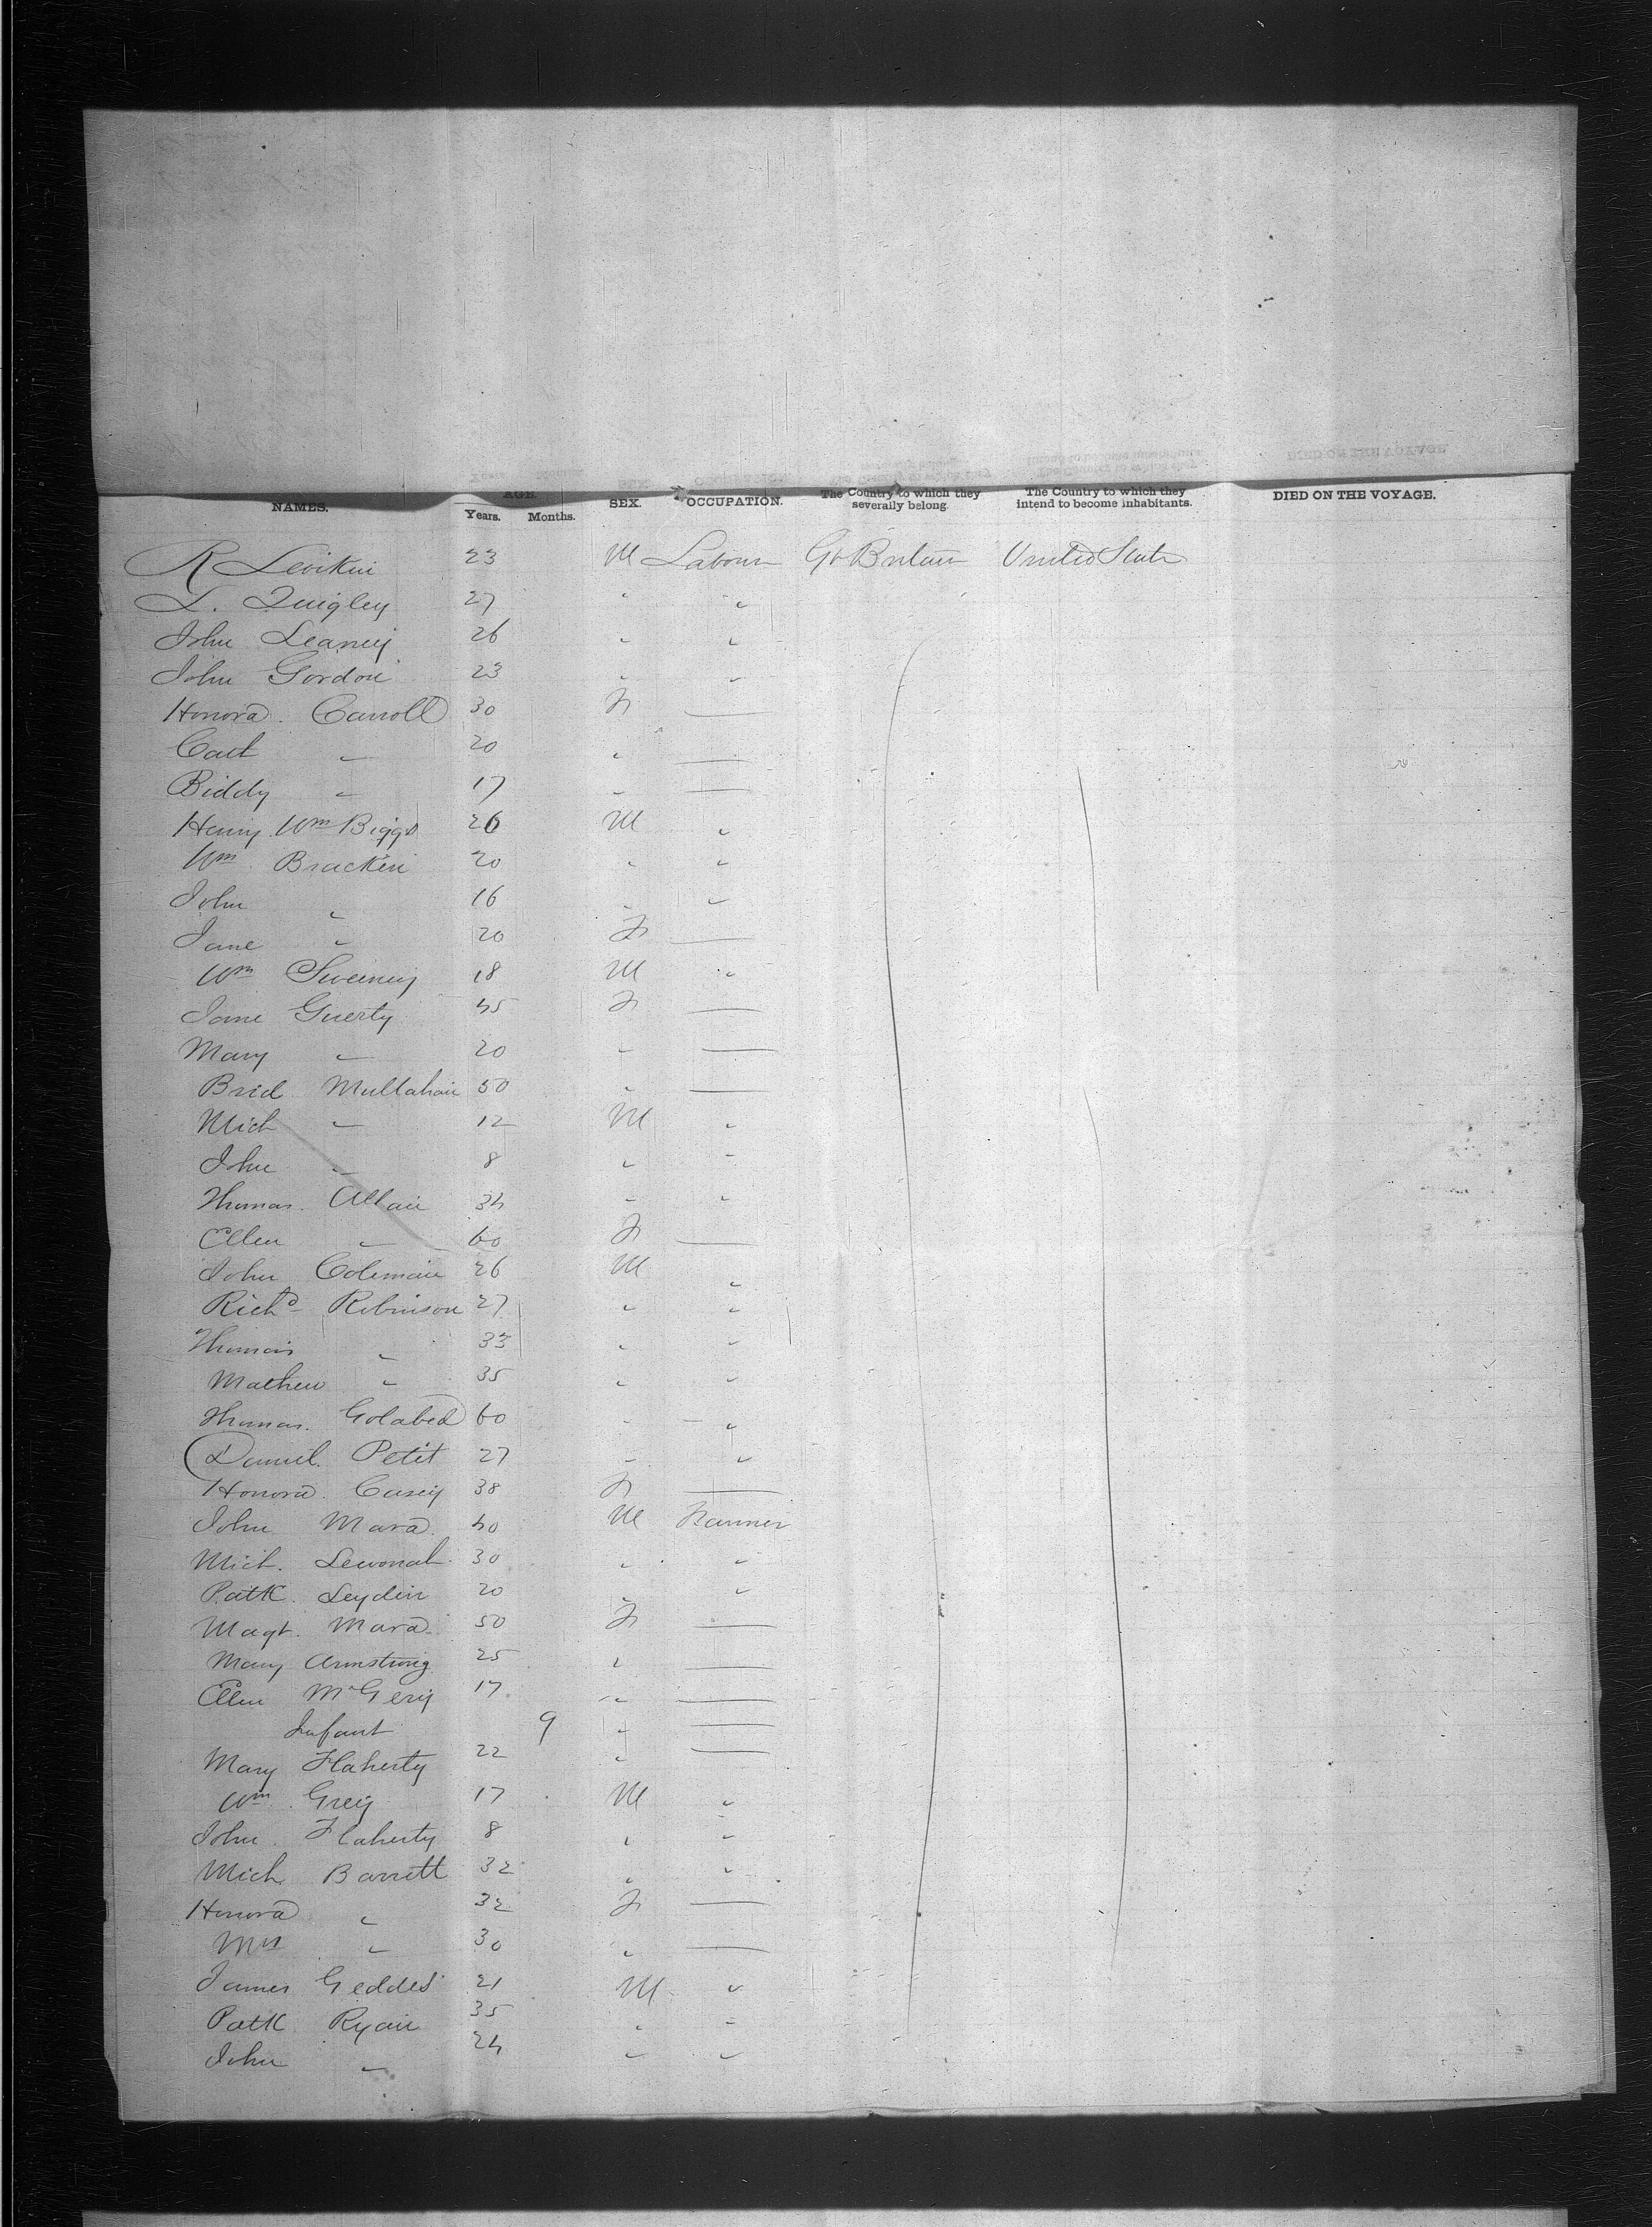 NAMES. AGE. Years. Months. SEX. OCCUPATION. The Country to which they severally belong. The Country to which they intend to become inhabitants. DIED ON THE VOYAGE.
R 23 M Labour Gt Britain United State
L. Quigley 27 " "
John Leaney 26 " "
John Gordon 23 " "
Honora Carroll 30 F —
Cat " 20 " —
Biddy " 17 " —
Henry Wm Biggs 26 M "
Wm Bracken 20 " "
John " 16 " "
Jane " 20 F —
Wm Sweeney 18 M "
Jane Guerty 45 F —
Mary " 20 " —
Brid Mullahan 50 " —
Mich " 12 M "
John " 8 " "
Thomas Allan 34 " "
Ellen " 60 F —
John Coleman 26 M "
Richd Robinson 27 " "
Thomas " 33 " "
Mathew " 35 " "
Thomas Golabed 60 " "
Daniel Petit 27 " "
Honora Casey 38 F —
John Mara 40 M Farmer
Mich. 30 " "
Patk. Leyden 20 " "
Magt. Mara 50 F —
Mary Armstrong 25 " —
Ellen McGery 17 " —
Infant 9 " —
Mary Flaherty 22 " —
Wm Grey 17 M "
John Flaherty 8 " "
Mich Barrett 32 " "
Honora " 32 F —
Mrs " 30 " —
James Geddes 21 M "
Patk Ryan 35 " "
John " 24 " "